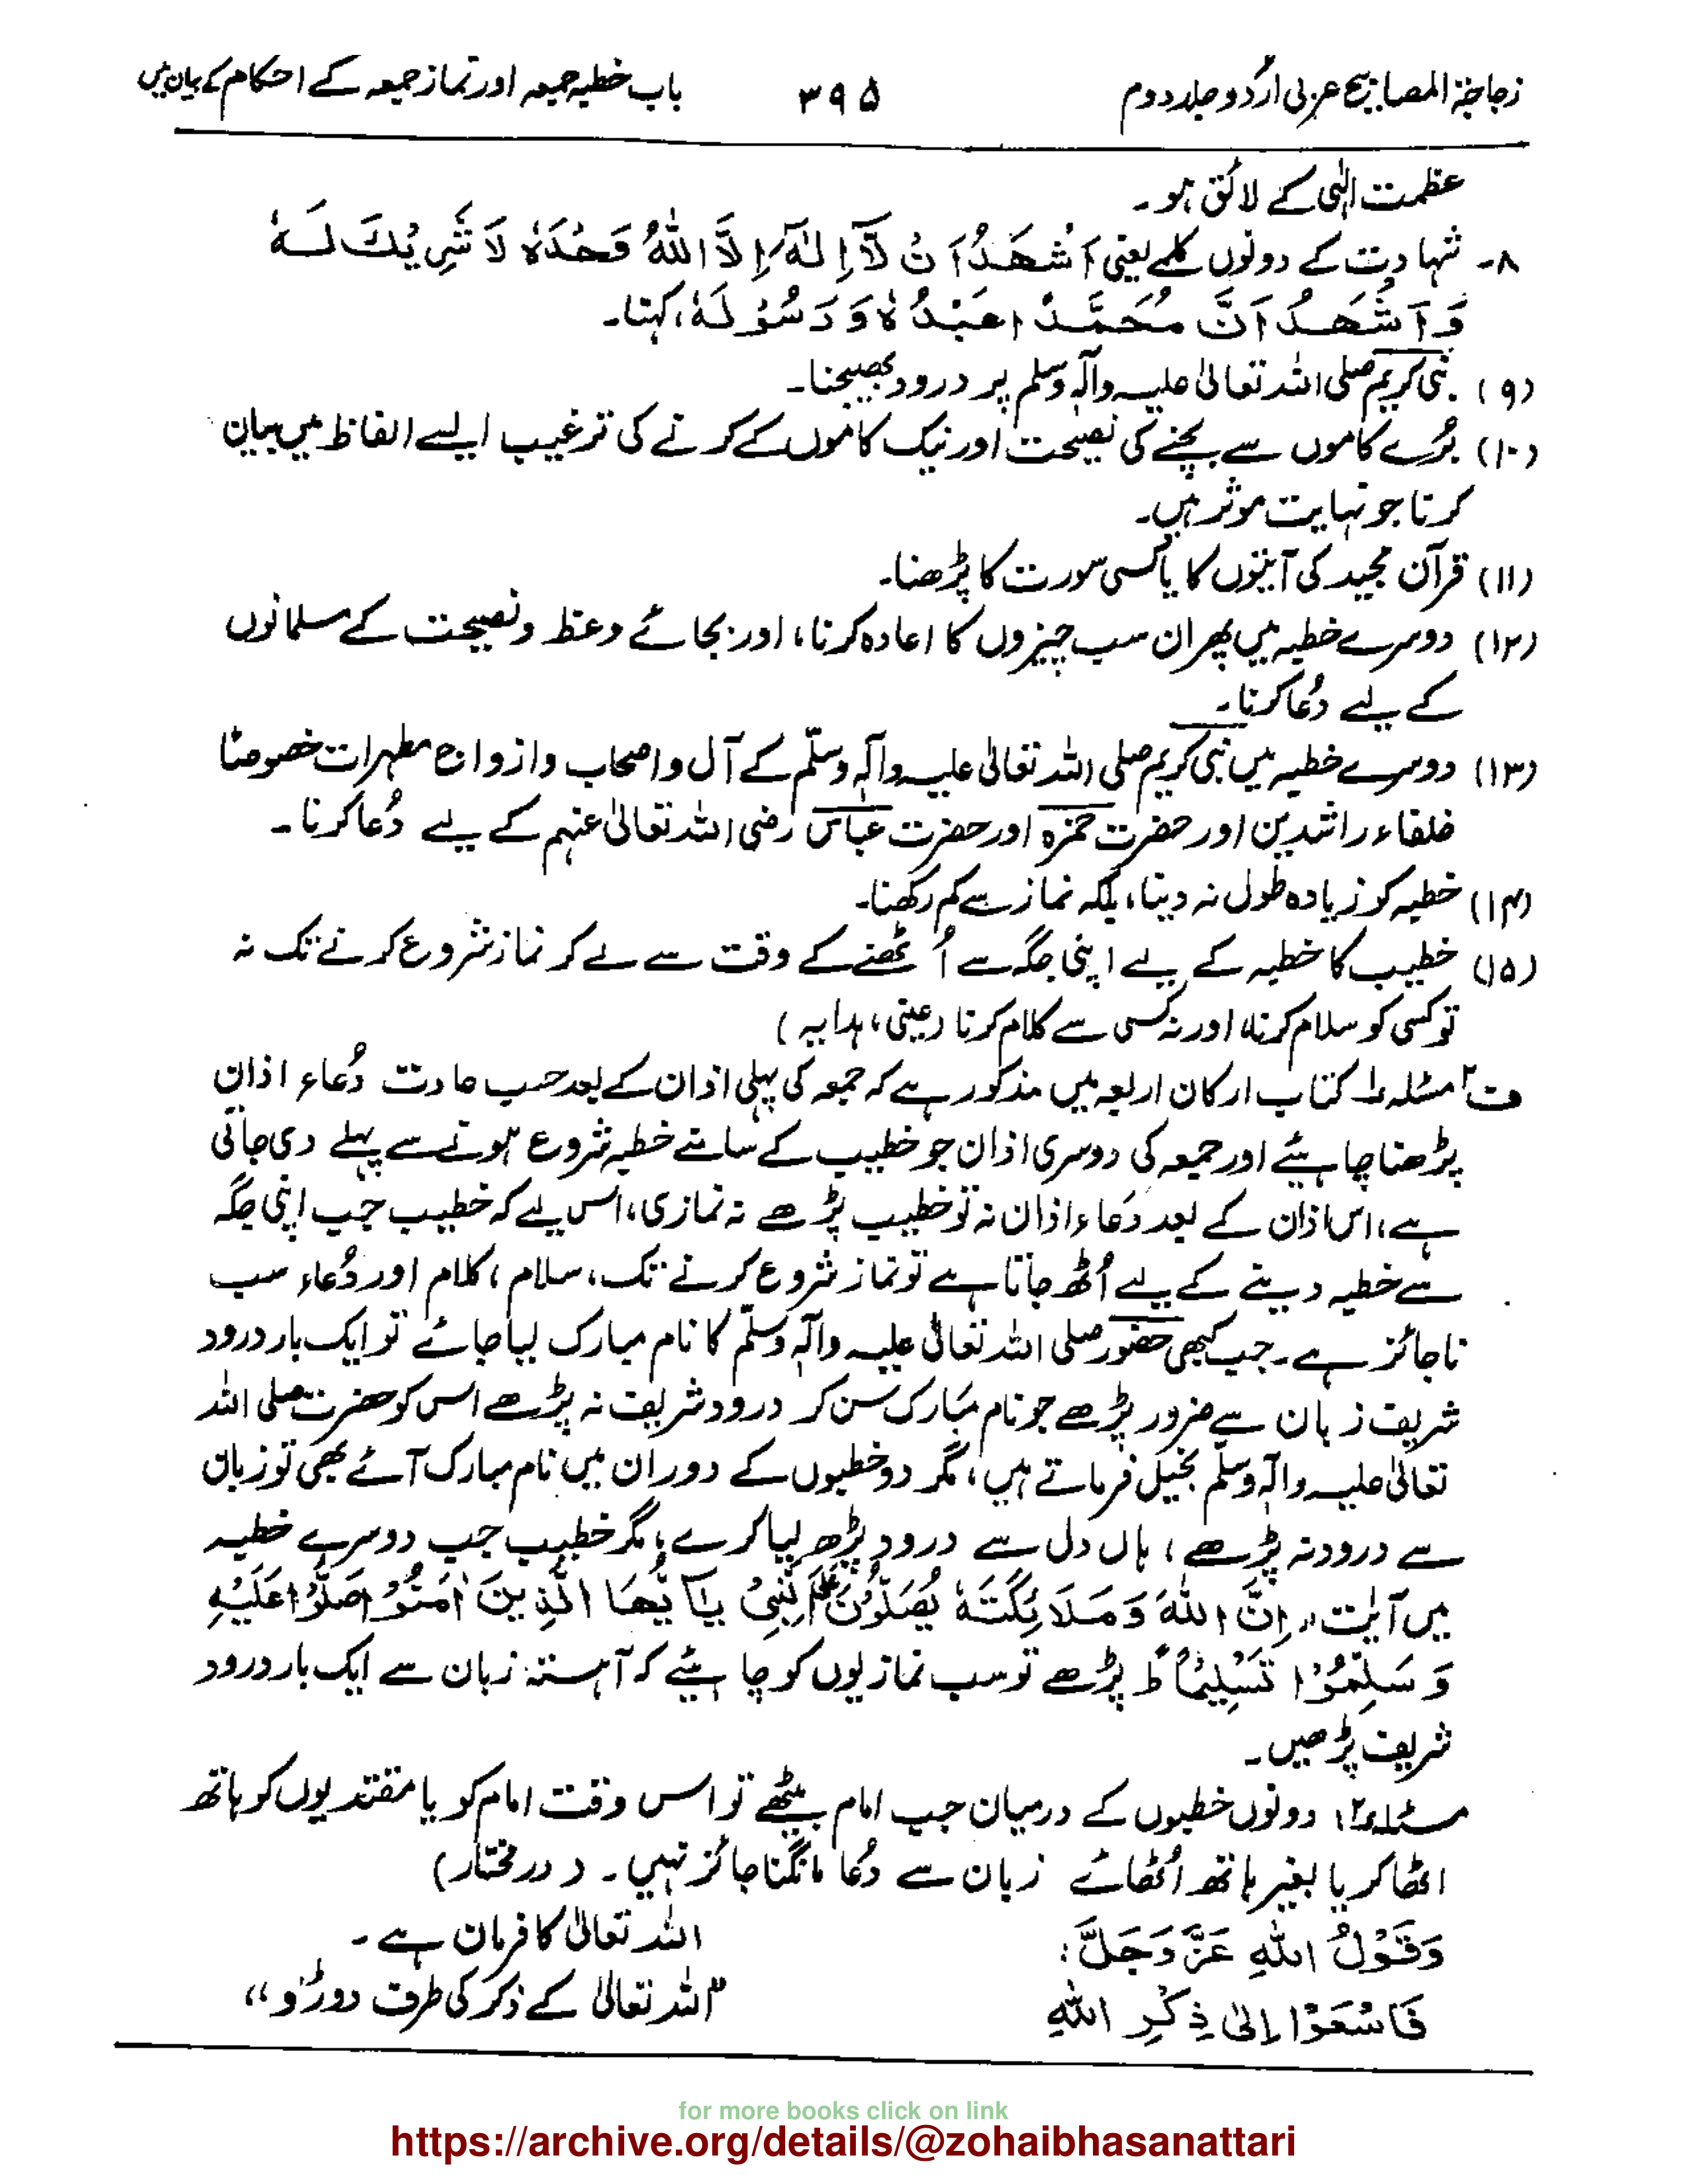 زجاجۃ المصابیح عربی اُردو جلد دوم
۳۹۵
باب خطبہ جمعہ اور نماز جمعہ کے احکام کے بیان میں
عظمت الٰہی کے لائق ہو۔
۸۔ شہادت کے دونوں کلمے یعنی اَشْهَدُ اَنْ لَّآ اِلٰهَ اِلَّا اللّٰهُ وَحْدَهٗ لَا شَرِیْكَ لَهٗ
وَ اَشْهَدُ اَنَّ مُحَمَّدًا عَبْدُهٗ وَ رَسُوْلَهٗ، کہنا۔
(۹) نبی کریم صلی اللہ تعالیٰ علیہ وآلہٖ وسلم پر درود بھیجنا۔
(۱۰) بُرے کاموں سے بچنے کی نصیحت اور نیک کاموں کے کرنے کی ترغیب ایسے الفاظ میں بیان
کرنا جو نہایت موثر ہیں۔
(۱۱) قرآن مجید کی آیتوں کا یا کسی سورت کا پڑھنا۔
(۱۲) دوسرے خطبہ میں پھر ان سب چیزوں کا اعادہ کرنا، اور بجائے وعظ و نصیحت کے مسلمانوں
کے لیے دُعا کرنا۔
(۱۳) دوسرے خطبہ میں نبی کریم صلی اللہ تعالیٰ علیہ وآلہٖ وسلّم کے آل و اصحاب و ازواج مطہرات خصوصًا
خلفاء راشدین اور حضرت حمزہ اور حضرت عباس رضی اللہ تعالیٰ عنہم کے لیے دُعا کرنا۔
(۱۴) خطبہ کو زیادہ طول نہ دینا، بلکہ نماز سے کم رکھنا۔
(۱۵) خطیب کا خطبہ کے لیے اپنی جگہ سے اُٹھنے کے وقت سے لے کر نماز شروع کرنے تک نہ
تو کسی کو سلام کرنا، اور نہ کسی سے کلام کرنا (عینی، ہدایہ)
ف۲ مسئلہ ۱ کتاب ارکان اربعہ میں مذکور ہے کہ جمعہ کی پہلی اذان کے بعد حسب عادت دُعاء اذان
پڑھنا چاہئیے اور جمعہ کی دوسری اذان جو خطیب کے سامنے خطبہ شروع ہونے سے پہلے دی جاتی
ہے، اس اذان کے بعد دُعاء اذان نہ تو خطیب پڑھے نہ نمازی، اس لیے کہ خطیب جب اپنی جگہ
سے خطبہ دینے کے لیے اُٹھ جاتا ہے تو نماز شروع کرنے تک، سلام، کلام اور دُعاء سب
ناجائز ہے۔ جب کبھی حضور صلی اللہ تعالیٰ علیہ وآلہٖ وسلّم کا نام مبارک لیا جائے تو ایک بار درود
شریف زبان سے ضرور پڑھے جو نام مبارک سن کر درود شریف نہ پڑھے اس کو حضرت صلی اللہ
تعالیٰ علیہ وآلہٖ وسلّم بخیل فرماتے ہیں، مگر دو خطبوں کے دوران میں نام مبارک آئے بھی تو زبان
سے درود نہ پڑھے، ہاں دل سے درود پڑھ لیا کرے، مگر خطیب جب دوسرے خطبہ
میں آیٰت، اِنَّ اللّٰهَ وَ مَلَائِكَتَهٗ یُصَلُّوْنَ عَلَی النَّبِیْ یٰاَیُّهَا الَّذِیْنَ اٰمَنُوْا صَلُّوْا عَلَیْهِ
وَ سَلِّمُوْا تَسْلِیْمًا ط پڑھے تو سب نمازیوں کو چاہئیے کہ آہستہ زبان سے ایک بار درود
شریف پڑھیں۔
مسئلہ ۲؍ دونوں خطبوں کے درمیان جب امام بیٹھے تو اس وقت امام کو یا مقتدیوں کو ہاتھ
اٹھا کر یا بغیر ہاتھ اُٹھائے زبان سے دُعا مانگنا جائز نہیں۔ (درمختار)
وَقَوْلُ اللّٰهِ عَزَّ وَجَلَّ:
اللہ تعالیٰ کا فرمان ہے۔
فَاسْعَوْا اِلٰی ذِكْرِ اللّٰهِ
"اللہ تعالیٰ کے ذکر کی طرف دوڑو"
for more books click on link
https://archive.org/details/@zohaibhasanattari